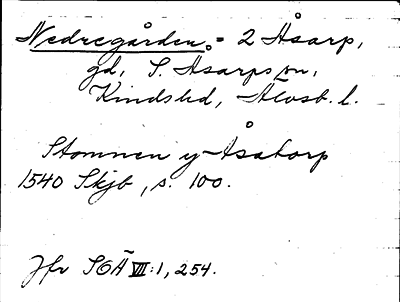 Nedregården = 2 Åsarp,
gd, S. Åsarps sn,
Kinds hd, Älvsb. l.
Stommen y Åsatorp
1540 Skjb, s. 100.
Jfr SOÄ VII:1, 254.